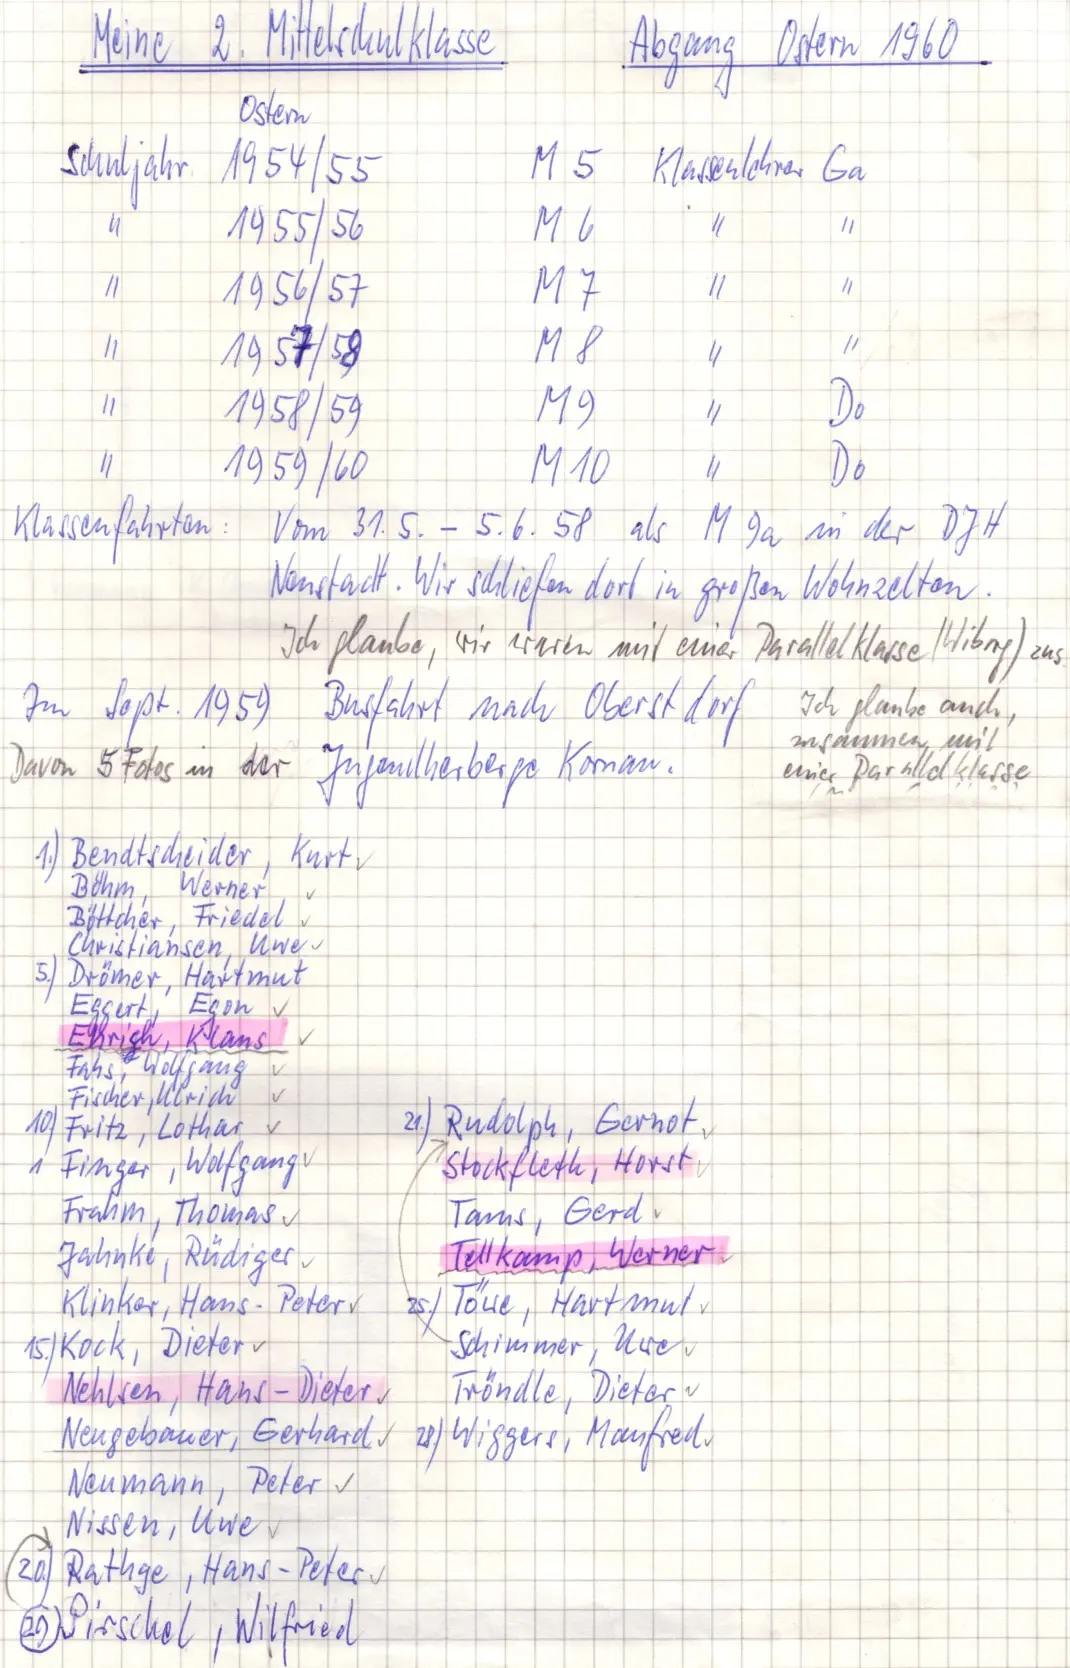 Meine 2. Mittelschulklasse Abgang Ostern 1960
Ostern
Schuljahr 1954/55 M 5 Klassenlehrer Ga
" 1955/56 M 6 " "
" 1956/57 M 7 " "
" 1957/58 M 8 " "
" 1958/59 M 9 " Do
" 1959/60 M 10 " Do
Klassenfahrten: Vom 31.5. - 5.6. 58 als M 9a in der DJH
Neustadt. Wir schliefen dort in großen Wohnzelten.
Ich glaube, wir waren mit einer Parallelklasse (Wiborg) zus.
Im Sept. 1959 Busfahrt nach Oberstdorf Ich glaube auch,
zusammen mit
Davon 5 Fotos in der Jugendherberge Kornau. einer Parallelklasse
1.) Bendtscheider, Kurt ✓
Böhm, Werner ✓
Böttcher, Friedel ✓
Christiansen, Uwe ✓
5.) Drömer, Hartmut
Eggert, Egon ✓
Ehrich, Klaus ✓
Fahs, Wolfgang ✓
Fischer, Ulrich ✓
10) Fritz, Lothar ✓
1 Finger, Wolfgang ✓
Frahm, Thomas ✓
Jahnke, Rüdiger ✓
Klinker, Hans-Peter ✓
15.) Kock, Dieter ✓
Nehlsen, Hans-Dieter ✓
Neugebauer, Gerhard ✓
Neumann, Peter ✓
Nissen, Uwe ✓
20) Rathge, Hans-Peter ✓
29) Pirschel, Wilfried
21.) Rudolph, Gernot ✓
Stockfleth, Horst ✓
Tams, Gerd ✓
Tellkamp, Werner ✓
25.) Töwe, Hartmut ✓
Schimmer, Uwe ✓
Tröndle, Dieter ✓
28) Wiggers, Manfred ✓